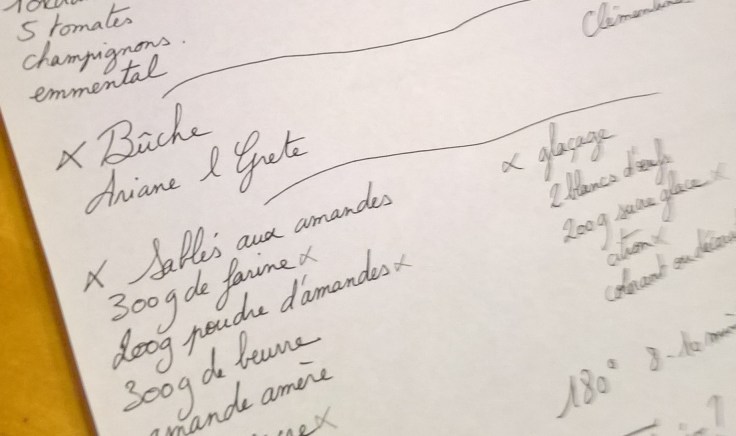 5 tomates
champignons.
emmental
× Bûche
Ariane & Grete
× Sablés aux amandes
300g de farine ×
200g poudre d'amandes ×
300g de beurre
amande amère
×
Clémentine
× glaçage
2 blancs d'œufs
200g sucre glace ×
citron ×
colorant ou
180° 8-10 min